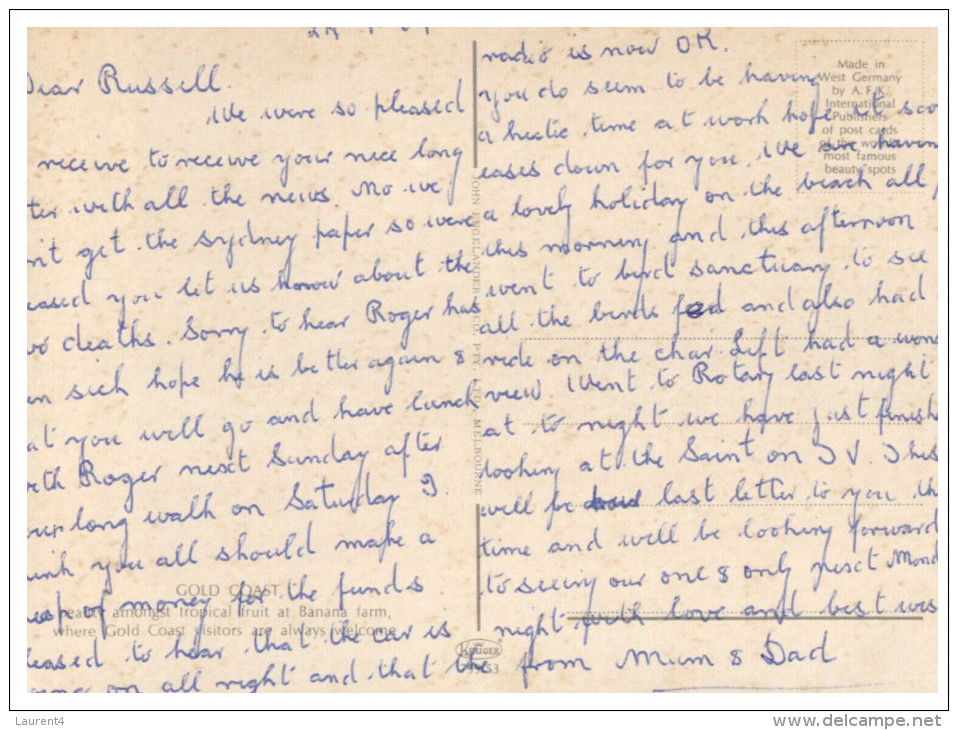 Dear Russell.
We were so pleased
receive to receive your nice long
with all the news. No we
get the Sydney paper so were
you let us know about the
deaths. Sorry to hear Roger has
sick hope he is better again &
you will go and have lunch
Roger next Sunday after
long walk on Saturday I
you all should make a
of money for the funds
to hear that the car is
on all right and that the
radio is now OK.
you do seem to be having
a hectic time at work hope it
eases down for you. We are
a lovely holiday on the beach all
this morning and this afternoon
went to bird sanctuary to see
all the birds fed and also had
ride on the chair lift had a
view. Went to Rotary last night
at to night we have just
looking at the Saint on T V. This
will be last letter to you
time and will be looking forward
to seeing our one & only next
night with love and best
from Mum & Dad
Made in
West Germany
by A.F.K.
International
Publishers
of post cards
of the
most famous
beauty spots
JOHN HINDE
MELBOURNE
GOLD COAST
amongst tropical fruit at Banana farm,
where Gold Coast visitors are always welcome
KRÜGER
Laurent4
www.delcampe.net